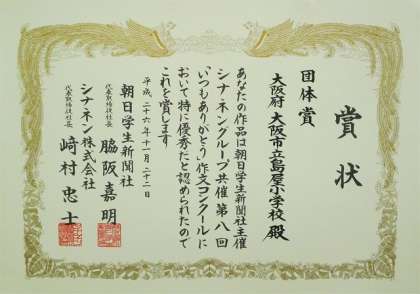 賞状
団体賞
大阪府 大阪市立島屋小学校 殿
あなたの作品は朝日学生新聞社主催
シナネングループ共催第八回
「いつもありがとう」作文コンクールに
おいて特に優秀だと認められたので
これを賞します
平成二十六年十一月二十二日
朝日学生新聞社
代表取締役社長 脇阪嘉明
シナネン株式会社
代表取締役社長 崎村忠士